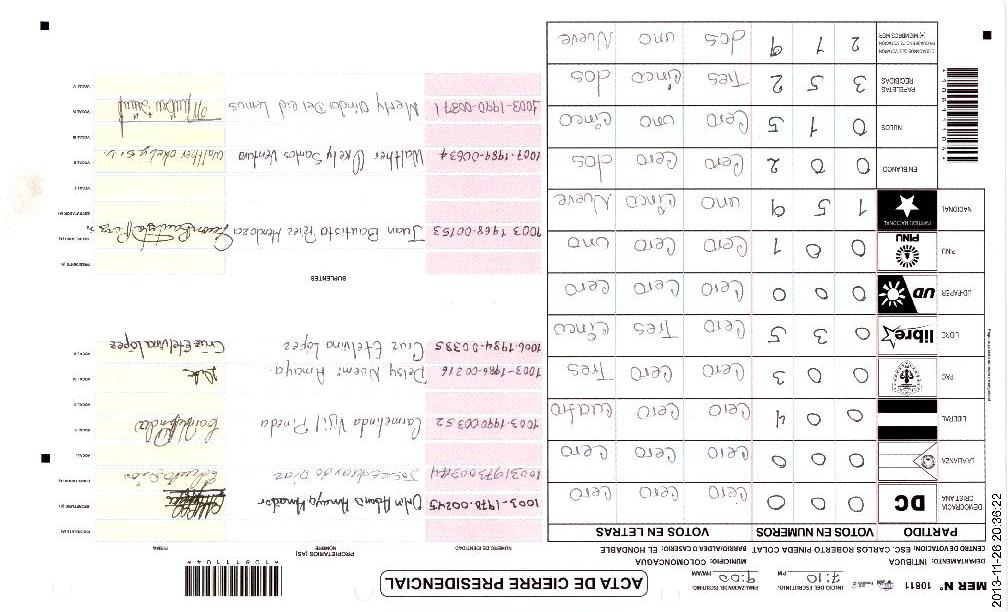 MER N° 10811
ACTA DE CIERRE PRESIDENCIAL
INICIO DEL ESCRUTINIO: 7:10 PM
FINALIZACION DE ESCRUTINIO: 9:00 PM/AM
DEPARTAMENTO: INTIBUCA MUNICIPIO: COLOMONCAGUA
CENTRO DE VOTACION: ESC. CARLOS ROBERTO PINEDA COLAT BARRIO/ALDEA O CASERIO: EL HONDABLE
PARTIDO VOTOS EN NUMEROS VOTOS EN LETRAS
DEMOCRACIA CRISTIANA DC 0 0 0 Cero Cero Cero
LA ALIANZA 0 0 0 Cero Cero Cero
LIBERAL 0 0 4 Cero Cero Cuatro
PAC 0 0 3 Cero Cero Tres
LIBRE libre 0 3 5 Cero Tres Cinco
UD-FAPER UD 0 0 0 Cero Cero Cero
PINU PINU 0 0 1 Cero Cero uno
NACIONAL PARTIDO NACIONAL 1 5 9 uno Cinco Nueve
EN BLANCO 0 0 2 Cero Cero dos
NULOS 0 1 5 Cero uno Cinco
PAPELETAS RECIBIDAS 3 5 2 Tres Cinco dos
CIUDADANOS QUE VOTARON EN CUADERNO DE VOTACION (+) MIEMBROS MER 2 1 9 dos uno Nueve
PROPIETARIOS (AS)
NUMERO DE IDENTIDAD NOMBRE FIRMA
1003-1978-00245 Orlin Adonis Amaya Amador
1003197300344 Jose Eduardo Diaz
1003-1990-00352 Carmelinda Vijil Pineda
1003-1986-00216 Delsy Noemi Amaya
1006-1984-00385 Cruz Etelvina López Cruz Etelvina lópez
SUPLENTES
1003-1968-00153 Juan Bautista Pérez Mendoza
1007-1984-00634 Walther Okely Santos Ventura Walther okely s. v.
1003-1990-0037 Merty Olinda Del cid Lemus
1 0 8 1 1 1 0 4 4
2013-11-26 20:36:22